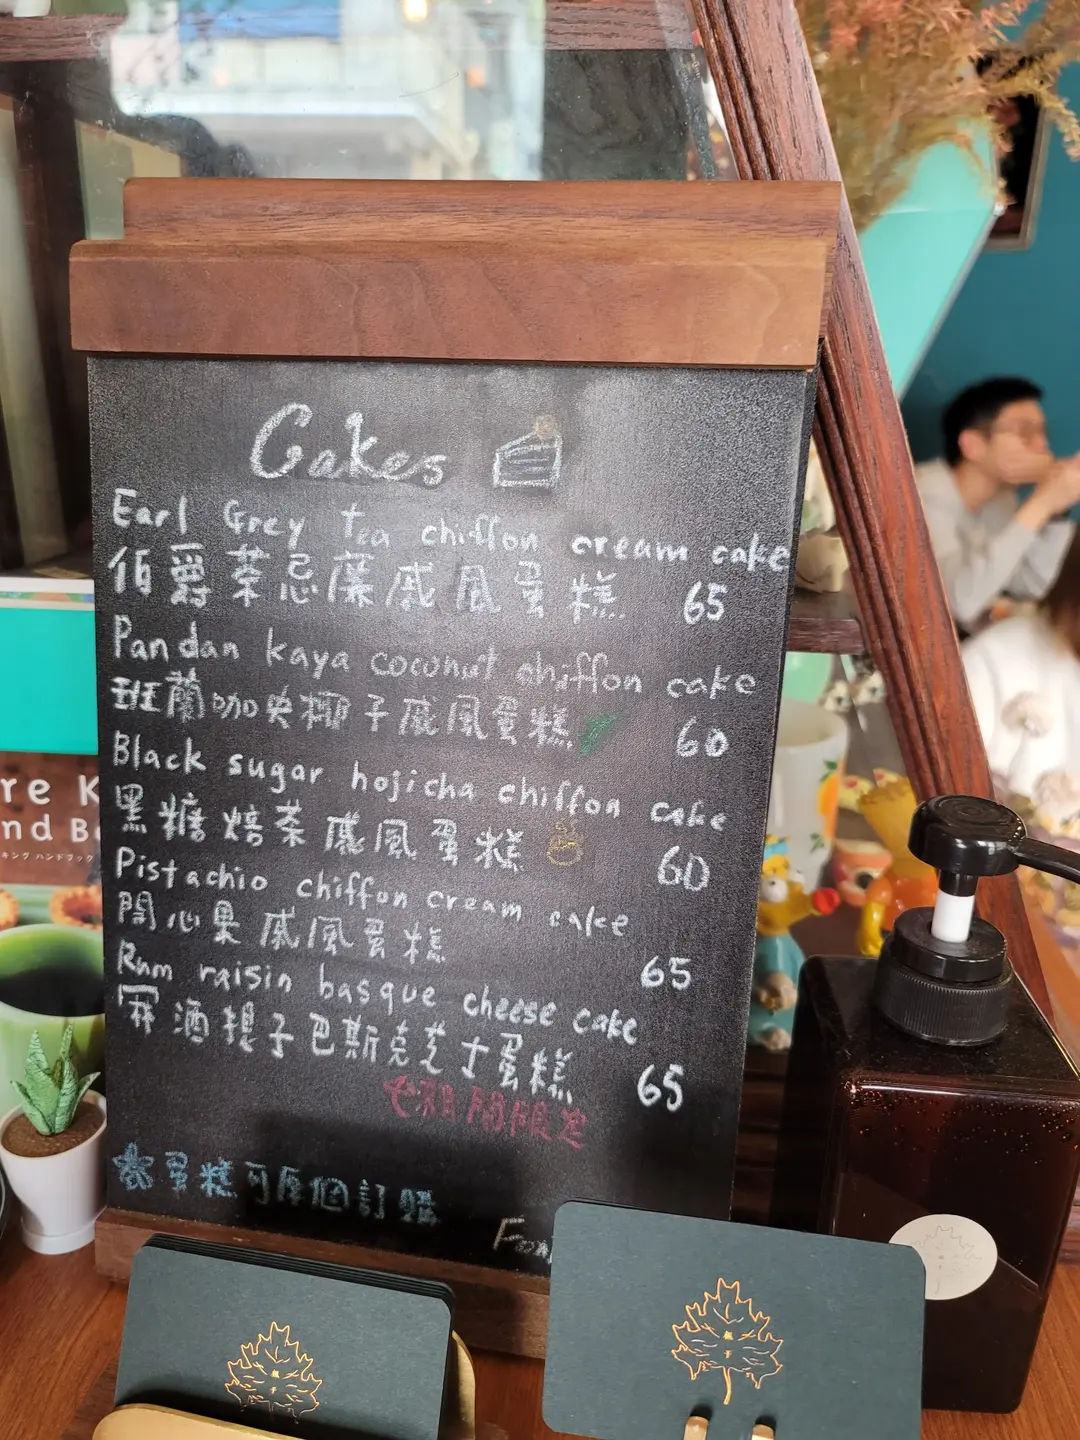 Cakes
Earl Grey tea chiffon cream cake
伯爵茶忌廉戚風蛋糕 65
Pandan kaya coconut chiffon cake
班蘭咖央椰子戚風蛋糕 60
Black sugar hojicha chiffon cake
黑糖焙茶戚風蛋糕 60
Pistachio chiffon cream cake
開心果戚風蛋糕 65
Rum raisin basque cheese cake
冧酒提子巴斯克芝士蛋糕 65
期間限定
蛋糕可原個訂購
re K
nd B
キング ハンドブック